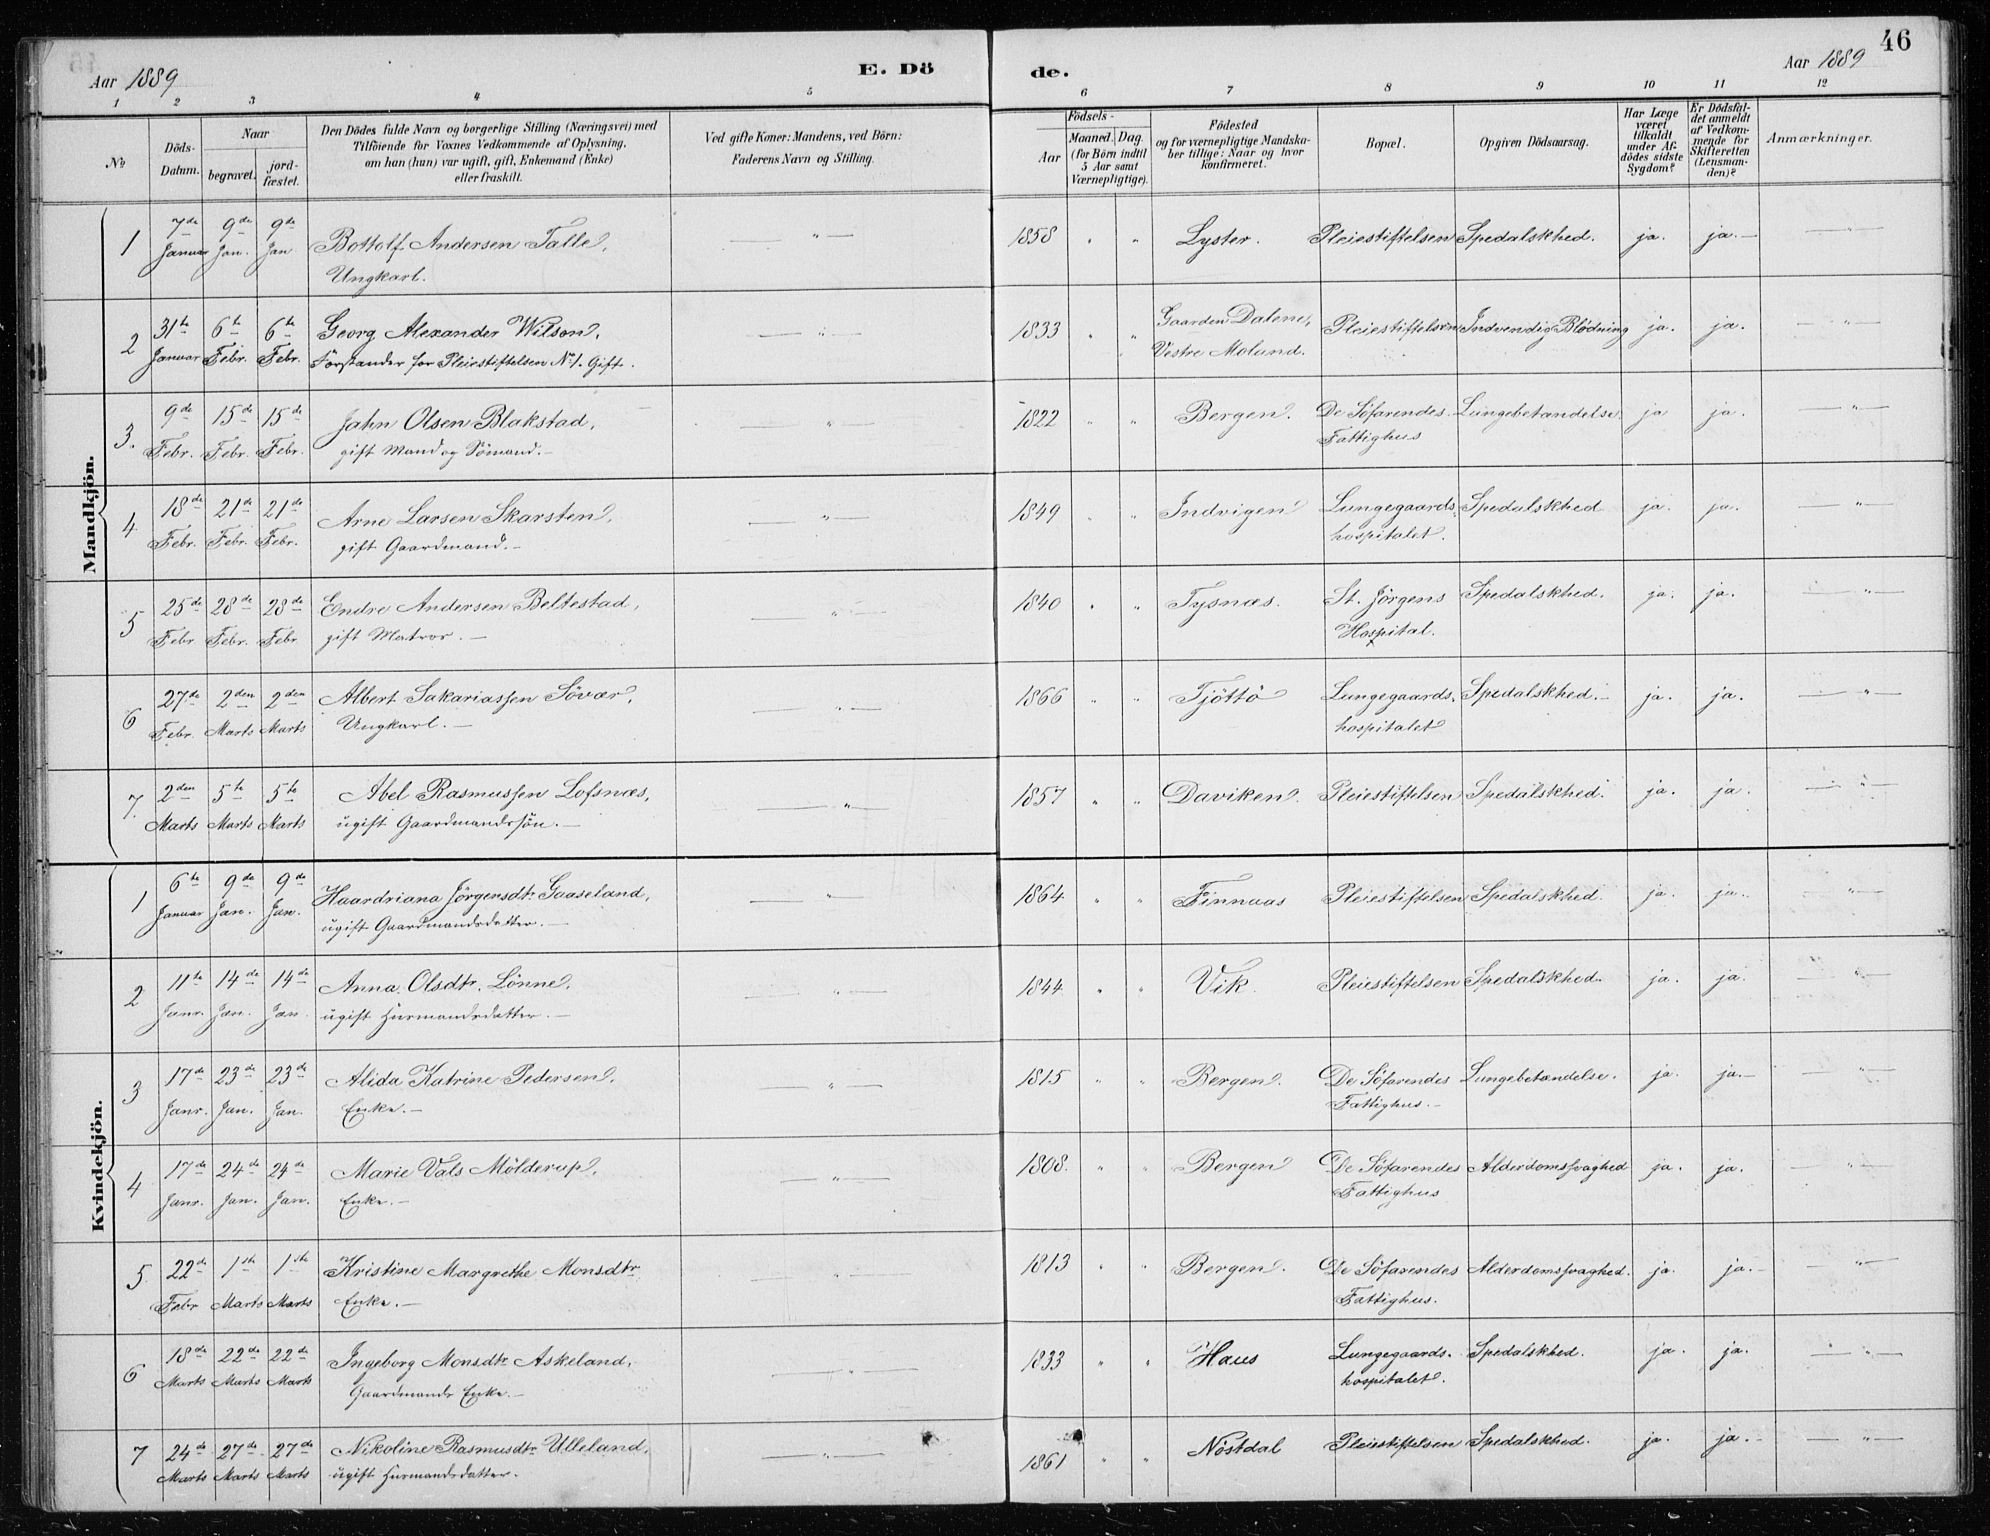 46
Aar 1889
E. Dö
de.
Aar 1889
1 2 3 4 5 6 7 8 9 10 11 12
No
Döds-Datum.
Naar
begravet.
jord-fæstet.
Den Dödes fulde Navn og borgerlige Stilling (Næringsvei) med
Tilföiende for Voxnes Vedkommende af Oplysning,
om han (hun) var ugift, gift, Enkemand (Enke)
eller fraskilt.
Ved gifte Koner: Mandens, ved Börn:
Faderens Navn og Stilling.
Födsels-
Aar
Maaned. Dag.
(for Börn indtil
5 Aar samt
Værnepligtige).
Födested
og for værnepligtige Mandska-
ber tillige: Naar og hvor
konfirmeret.
Bopæl.
Opgiven Dödsaarsag.
Har Læge
været
tilkaldt
under Af-
dödes sidste
Sygdom?
Er Dödsfal-
det anmeldt
af Vedkom-
mende for
Skifteretten
(Lensman-
den)?
Anmærkninger.
Mandkjön.
1 7de Januar 9de Jan. 9de Jan Bottolf Andersen Talle, — " — 1858 " " Lyster. Pleiestiftelsen Spedalskhed. ja. ja. —
Ungkarl.
2 31te Januar 6te Febr. 6te Febr. Georg Alexander Wilson, — " — 1833 " " Gaarden Dalene, Pleiestiftelsen Indvendig Blödning ja. ja. — " —
Forstander for Pleiestiftelsen No 1. Gift. Vestre Moland.
3. 9de Febr. 15de Febr. 15de Febr. Jahn Olsen Blakstad, — " — 1822 " " Bergen. De Söfarendes Lungebetændelse. ja ja. — " —
gift Mand og Sömand. — Fattighus
4 18de Febr. 21de Febr. 21de Febr. Arne Larsen Skarsten, — " — 1849 " " Indvigen Lungegaards- Spedalskhed ja. ja. — " —
gift Gaardmand. — hospitalet.
5 25de Febr 28de Febr. 28de Febr Endre Andersen Beltestad, — " — 1840 " " Tysnæs. St. Jörgens Spedalskhed. ja. ja. — " —
gift Matros. — Hospital.
6 27de Febr. 2den Marts 2den Marts Albert Sakariassen Sövær, — " — 1866 " " Tjöttö Lungegaards- Spedalskhed. — ja. ja. — " —
Ungkarl. — hospitalet
7. 2den Marts 5te Marts 5te Marts Abel Rasmussen Lofsnæs, — " — 1857 " " Daviken. Pleiestiftelsen Spedalskhed. ja. ja. — " —
ugift Gaardmandssön. —
Kvindekjön.
1 6te Januar 9de Jan. 9de Jan. Haardriana Jörgensdtr. Gaaseland, — " — 1864 " " Finnaas Pleiestiftelsen Spedalskhed. ja. ja. — " —
ugift Gaardmandsdatter. —
2 11te Janr. 14de Jan. 14de Jan Anna Olsdtr. Lönne, — " — 1844 " " Vik. Pleiestiftelsen Spedalskhed. ja. ja. — " —
ugift Husmandsdatter. —
3 17de Janr. 23de Jan. 23de Jan. Alida Katrine Pedersen, — " — 1815 " " Bergen. De Söfarendes Lungebetændelse. ja. ja. — — " —
Enke. — Fattighus. —
4 17de Janr. 24de Jan. 24de Jan. Marie Vals Mölderup, — " — 1808. " " Bergen De Söfarendes Alderdomssvaghed ja. ja. — " —
Enke. — Fattighus
5 22de Febr 1ste Marts 1ste Marts Kristine Margrethe Monsdtr — " — 1813 " " Bergen. De Söfarendes Alderdomssvaghed. ja. ja. — — " —
Enke. — Fattighus.
6 18de Marts 22de Marts 22de Marts Ingeborg Monsdtr. Askeland, — " — 1833 " " Haus Lungegaards- Spedalskhed. ja. ja. — " —
Gaardmands Enke. — hospitalet.
7 24de Marts 27de Marts 27de Marts Nikoline Rasmusdtr. Ulleland, — " — 1861 " " Nöstdal Pleiestiftelsen Spedalskhed. ja. ja. — — " —
ugift Husmandsdatter.